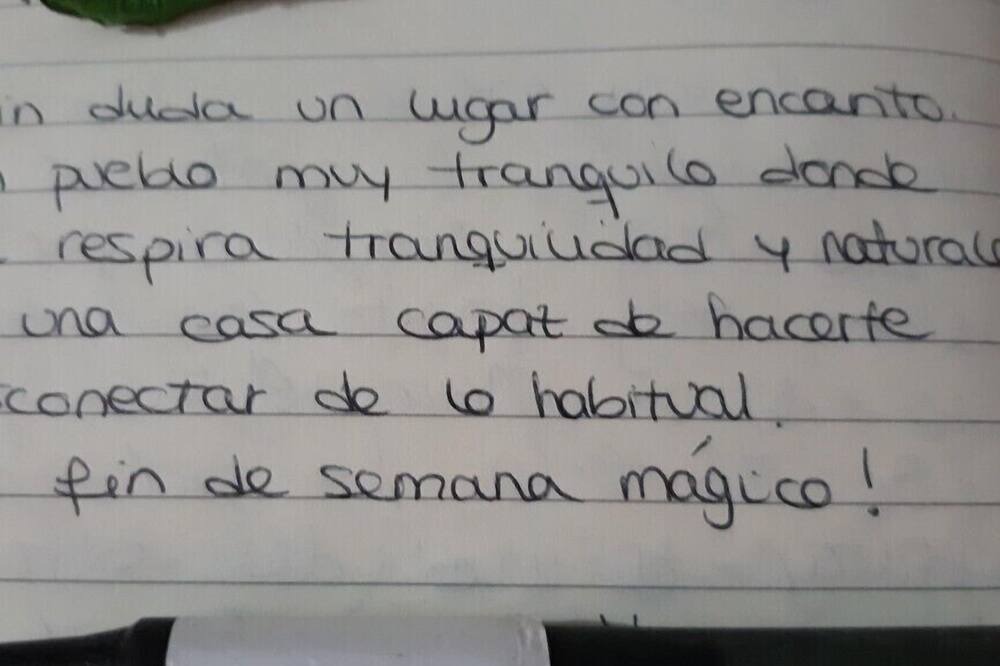 in duda un lugar con encanto.
pueblo muy tranquilo donde
respira tranquilidad y natural
una casa capat de hacerte
conectar de lo habitual.
fin de semana mágico!